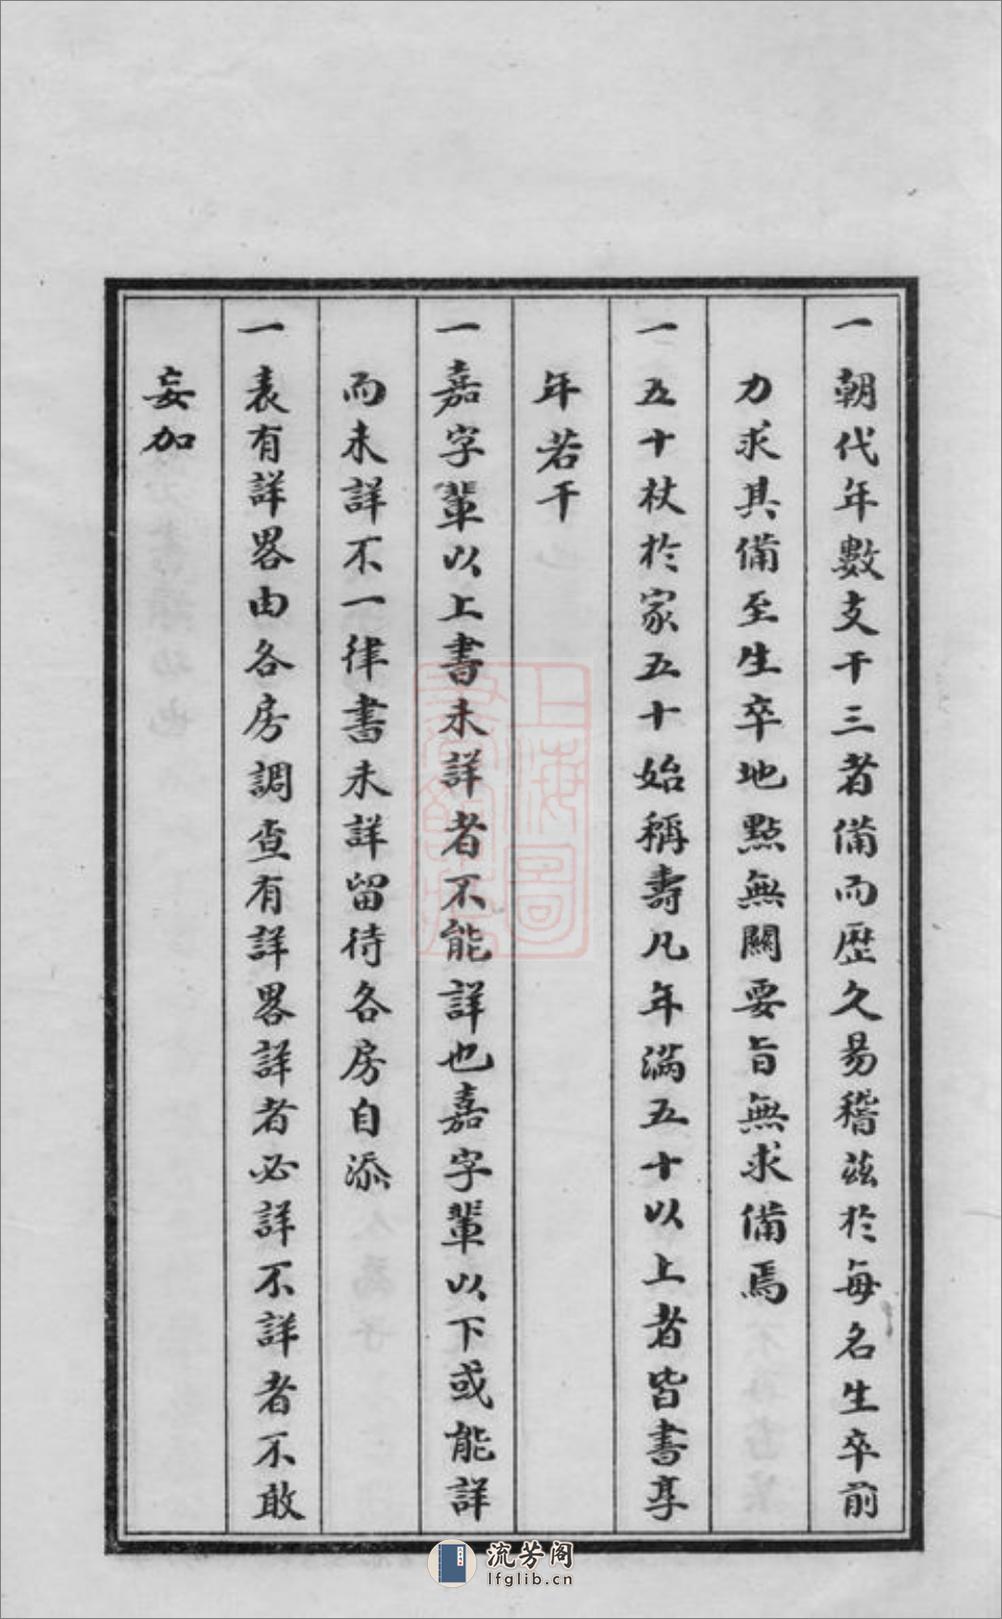 一朝代年數支干三者備而歷久易稽茲於每名生卒前
力求其備至生卒地點無關要旨無求備焉
一五十杖於家五十始稱壽凡年滿五十以上者皆書享
年若干
一嘉字輩以上書未詳者不能詳也嘉字輩以下或能詳
而未詳不一律書未詳留待各房自添
一表有詳畧由各房調查有詳畧詳者必詳不詳者不敢
妄加
上海圖
流芳阁
lfglib.cn